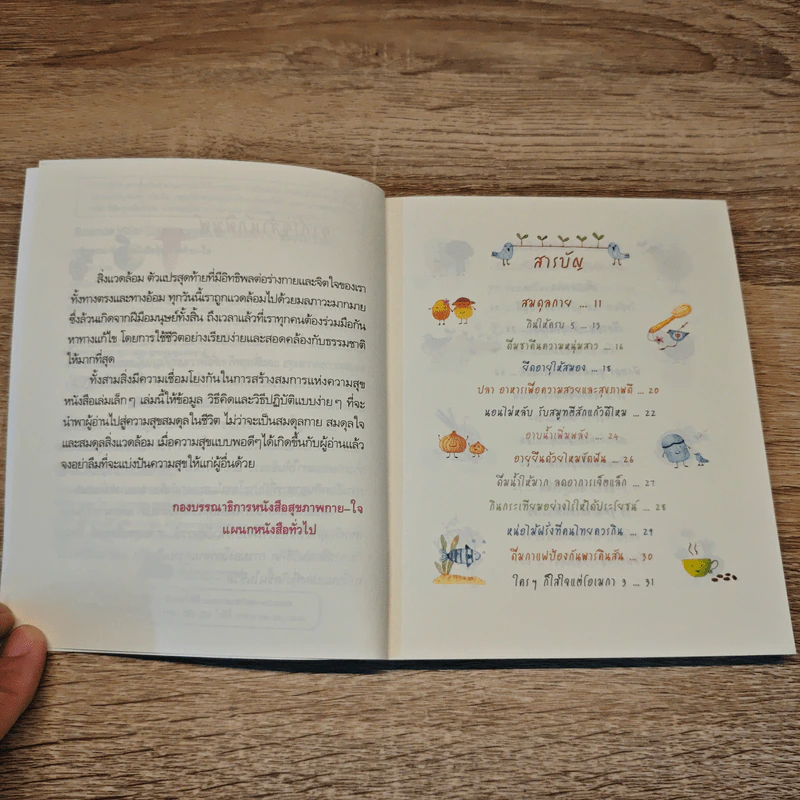 สิ่งแวดล้อม ตัวแปรสุดท้ายที่มีอิทธิพลต่อร่างกายและจิตใจของเรา
ทั้งทางตรงและทางอ้อม ทุกวันนี้เราถูกแวดล้อมไปด้วยมลภาวะมากมาย
ซึ่งล้วนเกิดจากฝีมือมนุษย์ทั้งสิ้น ถึงเวลาแล้วที่เราทุกคนต้องร่วมมือกัน
หาทางแก้ไข โดยการใช้ชีวิตอย่างเรียบง่ายและสอดคล้องกับธรรมชาติ
ให้มากที่สุด
ทั้งสามสิ่งมีความเชื่อมโยงกันในการสร้างสมการแห่งความสุข
หนังสือเล่มเล็กๆ เล่มนี้ให้ข้อมูล วิธีคิดและวิธีปฏิบัติแบบง่ายๆ ที่จะ
นำพาผู้อ่านไปสู่ความสุขสมดุลในชีวิต ไม่ว่าจะเป็นสมดุลกาย สมดุลใจ
และสมดุลสิ่งแวดล้อม เมื่อความสุขแบบพอดีๆ ได้เกิดขึ้นกับผู้อ่านแล้ว
จงอย่าลืมที่จะแบ่งปันความสุขให้แก่ผู้อื่นด้วย
กองบรรณาธิการหนังสือสุขภาพกาย-ใจ
แผนกหนังสือทั่วไป
สารบัญ
สมดุลกาย ... 11
กินให้ครบ 5 ... 13
ดื่มชาคืนความหนุ่มสาว ... 16
ยืดอายุให้สมอง ... 18
ปลา อาหารเพื่อความสวยและสุขภาพดี ... 20
นอนไม่หลับ รับสมูทตี้สักแก้วดีไหม ... 22
อาบน้ำเพิ่มพลัง ... 24
อายุยืนด้วยไหมขัดฟัน ... 26
ดื่มน้ำให้มาก ลดอาการเจ็ตแล็ก ... 27
กินกระเทียมอย่างไรให้ได้ประโยชน์ ... 28
หน่อไม้ฝรั่งที่คนไทยควรกิน ... 29
ดื่มกาแฟป้องกันพาร์คินสัน ... 30
ใครๆ ก็ใส่ใจแต่โอเมกา 3 ... 31